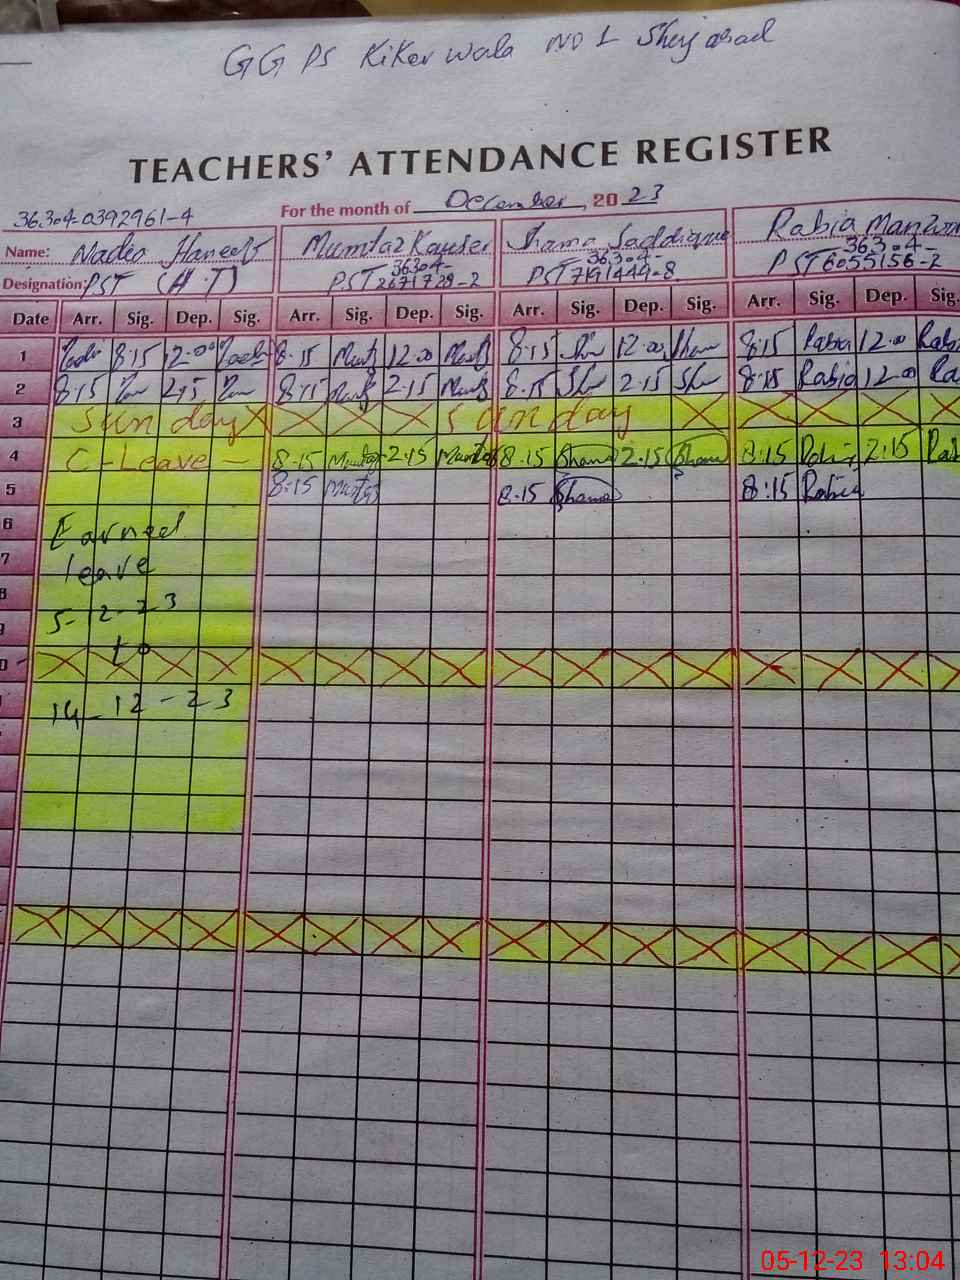 GGPS Kikerwala no 1 Shujabad
TEACHERS' ATTENDANCE REGISTER
For the month of December, 2023
36304-0392961-4
Name: Haneef Mumtaz Kouser Shama Saddique Rabia
36304- 36304- 36304-
Designation: PST (H.T) PST 2671728-2 PST 7191449-8 PST 6055156-2
Date Arr. Sig. Dep. Sig. Arr. Sig. Dep. Sig. Arr. Sig. Dep. Sig. Arr. Sig. Dep. Sig.
1 8:15 12:00 8:15 12:00 8:15 12:00 Sham 8:15 Rabia 12:00
2 8:15 2:15 8:15 2:15 8:15 Sh 2:15 Sh 8:15 Rabia 12:00 Ra
3 Sunday Sunday
4 C-Leave 8:15 2:15 8:15 Shama 2:15 Shama 8:15 2:15
5 8:15 8:15 Shama 8:15 Rabia
6 Earned
7 leave
8
5-12-23
9
to
0
14-12-23
05-12-23 13:04